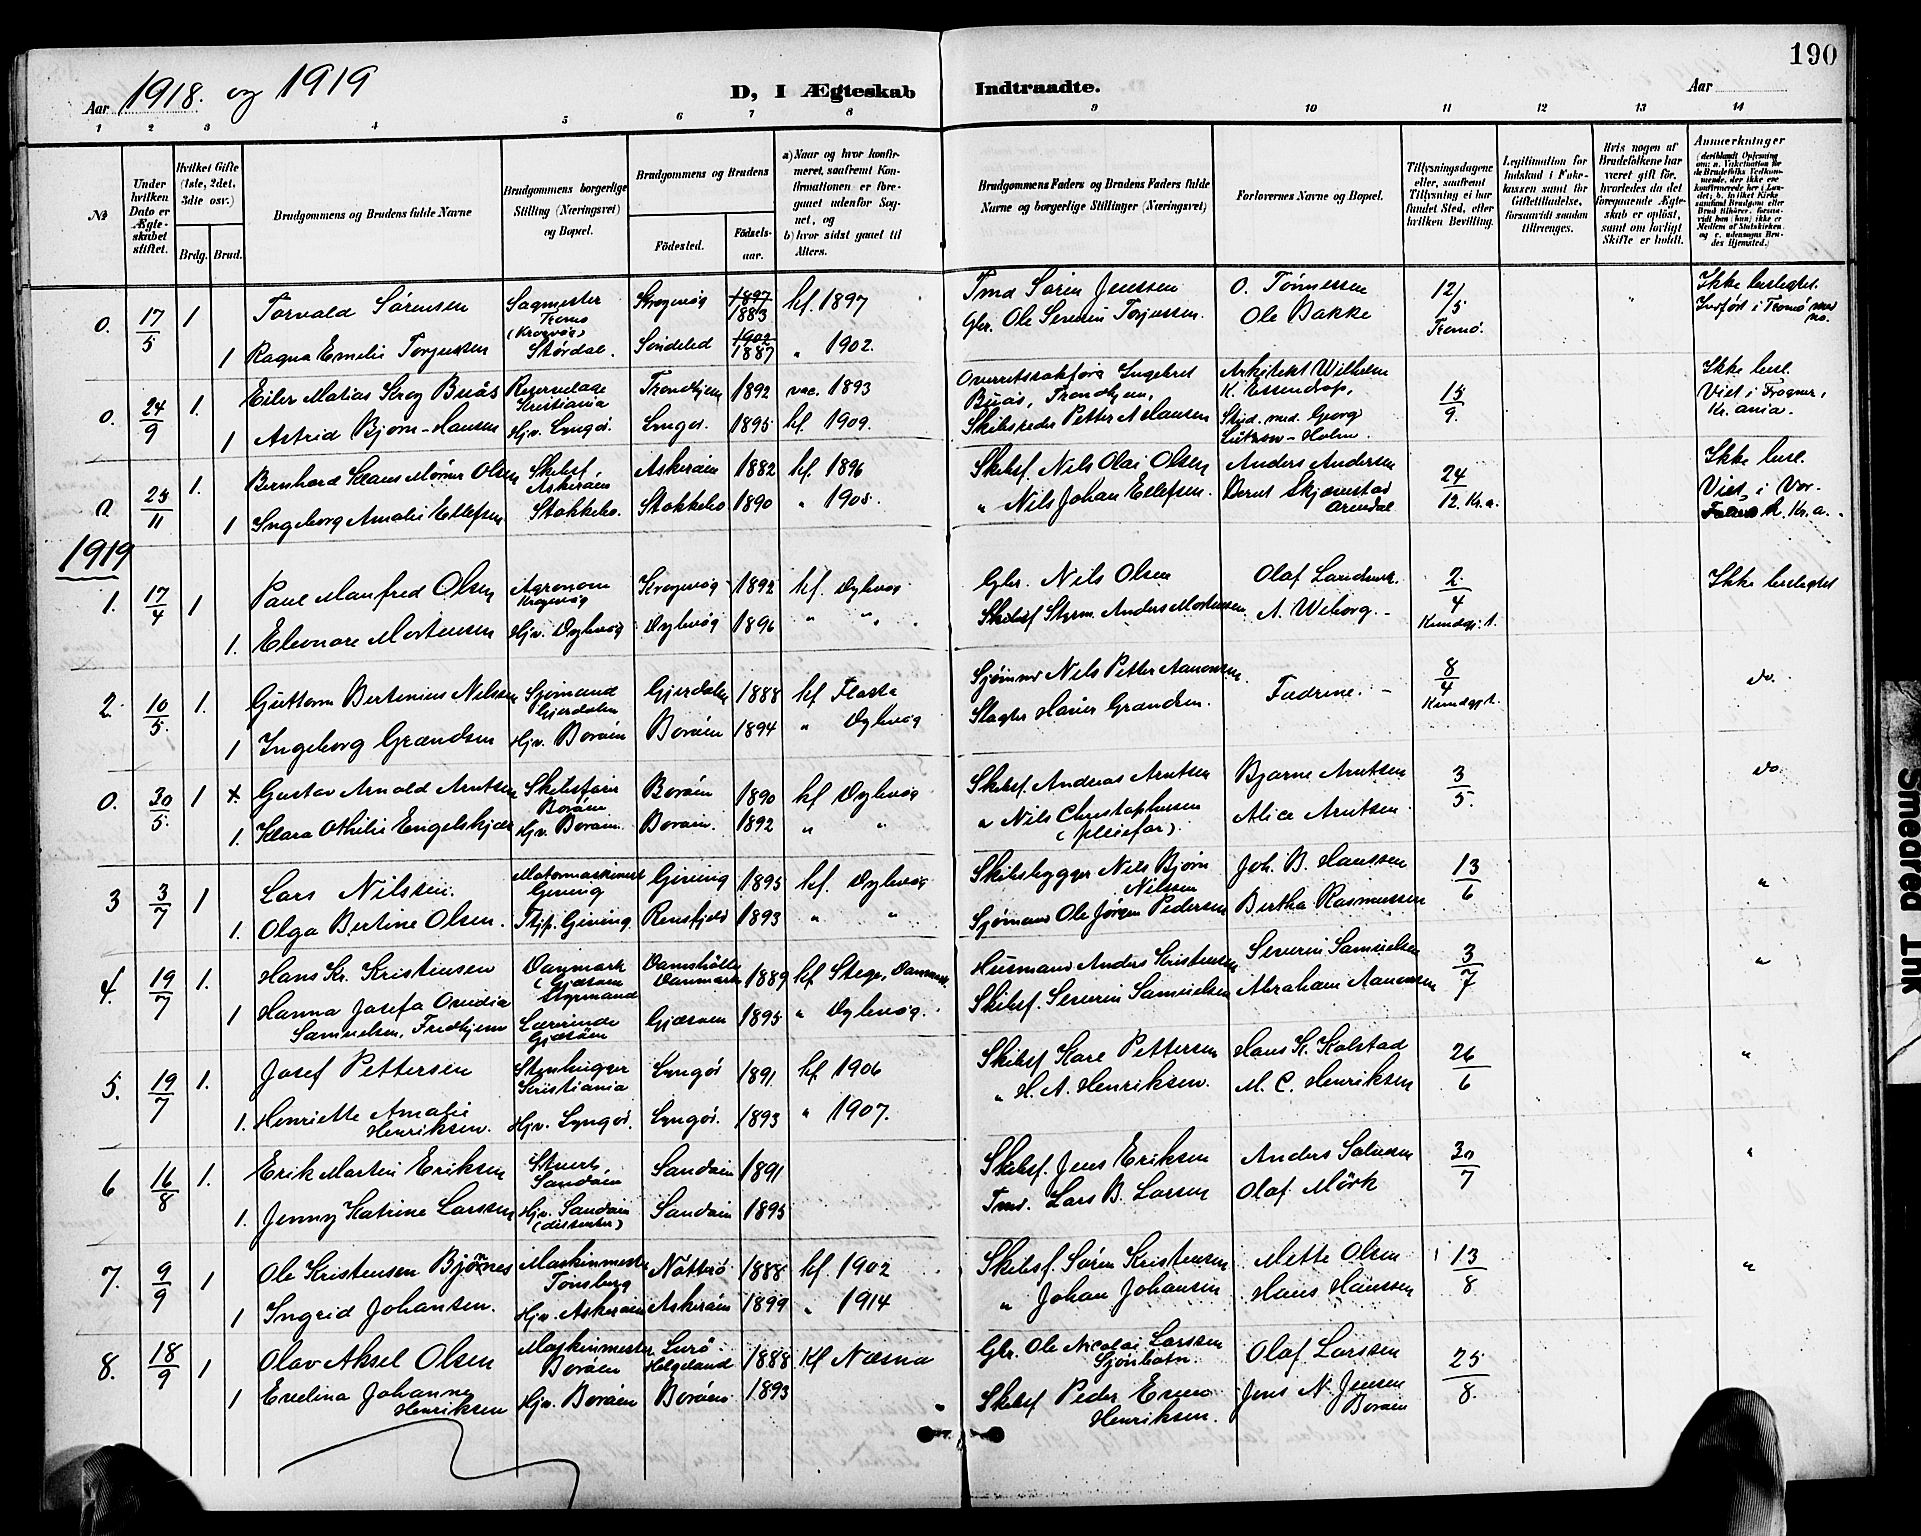 190
Aar 1918 og 1919
D, I Ægteskab Indtraadte.
Aar
1 2 3 4 5 6 7 8 9 10 11 12 13 14
№
Under hvilken Dato er Ægteskabet stiftet.
Hvilket Gifte (1ste, 2det, 3die osv.)
Brdg. Brud.
Brudgommens og Brudens fulde Navne
Brudgommens borgerlige Stilling (Næringsvei) og Bopæl.
Brudgommens og Brudens
Fødested.
Fødselsaar.
a) Naar og hvor konfirmeret, saafremt Konfirmationen er foregaaet udenfor Sognet, og
b) hvor sidst gaaet til Alters.
Brudgommens Faders og Brudens Faders fulde Navne og borgerlige Stillinger (Næringsvei)
Forlovernes Navne og Bopæl.
Tillysningsdagene eller, saafremt Tillysning ei har fundet Sted, efter hvilken Bevilling.
Legitimation for Indskud i Enkekassen samt for Giftetilladelse, forsaavidt saadan tiltrænges.
Hvis nogen af Brudefolkene har været gift før, hvorledes da det foregaaende Ægteskab er opløst, samt om lovligt Skifte er holdt.
Anmærkninger
0. 17/5 1 Torvald Sørensen Sagmester Tromø (Kragevøg) Kragevøg 1897 1883 kf 1897 Tmd Søren Jenssen O. Tönnessen 12/5 Tromø. Ikke beslegtet. Indført i Tromø
1 Ragna Emelie Torjussen Stördal. Söndeled 1902 1887 " 1902. Gbr. Ole Severin Torjussen. Ole Bakke
0. 24/9 1. Eiler Matias Krog Buås Kristiania Trondhjem 1892 vac. 1893 Overretssakförer Ingebret Buås, Trondhjem, Arkitekt Wilhelm K. Essendop, 15/9. Ikke besl. Viet i Frogner, Kr.ania.
1 Astrid Bjørn-Hansen Hjv. Lyngör. Lyngör. 1895 kf. 1909. Skibsreder Petter A Hansen Stud. med. Georg Lützow-Holm.
0 25/11 1. Bernhard Klaus Mørner Olsen Skibsf. Askeröen Askeröen 1882 kf. 1896 Skibsf. Nils Olai Olsen Anders Andersen 24/12. Kr.a. Ikke besl. Viet i Vor Frelsers k. Kr.a.
1 Ingeborg Amalie Ellefsen Stokkebo. Stokkebo 1890 " 1905. " Nils Johan Ellefsen. Bernt Skjævestad Arendal
1919
1. 17/4 1 Paul Manfred Olsen Agronom Kragevøg Kragevøg 1892 kf. Dybvøg Gbr. Nils Olsen Olaf Landmrk. 2/4 Kundgj. t. Ikke beslegtet
1. Eleonore Mortensen Hjv. Dybvøg Dybvøg 1896 " ". Skibsf Styrm. Anders Mortensen A. Wiborg.
2 10/5. 1. Guttorm Bertinius Nilssen Sjømand Gjerdalen Gjerdalen 1888 kf Flosta Sjømnd Nils Petter Aanonsen. Fædrine. 8/4 Kundgjt. do.
1 Ingeborg Grændsen Hjv. Boröen Boröen 1894 " Dybvøg Slagter Haver Grændsen.
0. 30/5. 1 x. Gustav Arnold Arntsen Skibsfører Boröen Boröen 1890 kf Dybvøg Skibsf. Andreas Arntsen Bjarne Arntsen 3/5. do.
1. Klara Othilie Engelskjær Hjv. Boröen. Boröen. 1892 " " " Nils Christophersen (pleiefar). Alice Arntsen
3 3/7 1 Lars Nilssen. Motormaskinist Gjeving Gjeving 1895 kf. Dybvøg Skibsbygger Nils Bjørn Nilssen Joh. B. Hanssen 13/6 "
1. Olga Bertine Olsen. Tjp. Gjeving. Rensfjeld 1893 " " Sjømand Ole Jörgen Pedersen Bertha Rasmussen
4. 19/7 1. Hans Kr. Kristensen Danmark (Gjæsøen) Styrmand Damsholte Danmark 1889 kf Stege, Danmrk. Husmand Anders Kristensen Severin Samuelsen 3/7 "
1 Hanna Josefa Ovidia Samuelsen, Fredhjem Lærerinde Gjæsöen Gjæsøen 1895 " Dybvøg. Skibsf. Severin Samuelsen Abraham Aanonsen
5. 19/7 1. Josef Pettersen Stenhugger Kristiania Lyngör 1891 kf. 1906 Skibsf Karl Pettersen Hans K. Kolstad 26/6 "
1. Henriette Amalie Henriksen. Hjv. Lyngör. Lyngör. 1893 " 1907. " H. A. Henriksen. M. C. Henriksen
6 16/8 1. Erik Martin Eriksen Stuert, Sandöen Sandöen 1891 Skibsf. Jens Eriksen Anders Salvesen 30/7 "
1. Jenny Katrine Larssen Hjv. Sandöen (dissenter) Sandöen 1895 Tmd. Lars B. Larsen Olaf Mörk
7. 9/9 1 Ole Kristensen Bjørnes Maskinmester Tönsberg Nötterö 1888 kf. 1902 Skibsf. Sören Kristensen Mette Olsen 13/8 "
1 Ingrid Johansen. Hjv. Askeröen Askeröen 1899 " 1914 " Johan Johansen Hans Hanssen
8. 18/9 1 Olav Aksel Olsen Maskinmester Boröen Lurö. Helgeland 1888 Kf Næsna Gbr. Ole Nicolai Larssen Sjönbotn. Olaf Larssen 25/8.
1 Evelina Johanne Henriksen Hjv. Boröen Boröen 1893 " Skibsf Peder Henriksen. Jens N. Jensen Boröen
Smeared Ink